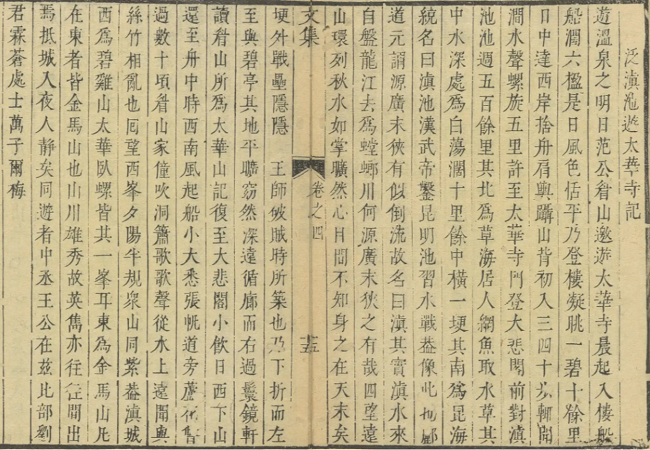 泛滇池遊太華寺記
遊溫泉之明日范公眷山邀遊太華寺晨起入樓船
船濶六楹是日風色恬平乃登樓凝眺一碧十餘里
日中達西岸捨舟肩輿躡山背初入三四十步輒聞
澗水聲螺旋五里許至太華寺門登大悲閣前對滇
池池週五百餘里其北為草海居人網魚取水草其
中水深處為白蕩濶十里餘中橫一埂其南為昆海
統名曰滇池漢武帝鑿昆明池習水戰葢像此也酈
道元謂源廣末狹有似倒流故名曰滇其實滇水來
自盤龍江去為螳螂川何源廣末狹之有哉四望遠
山環列秋水如掌曠然心目間不知身之在天末矣
文集
卷之四
十五
埂外戰壘隱隱 王師破賊時所築也乃下折而左
至與碧亭其地平曠窈然深遠循廊而右過鬟鏡軒
讀眷山所為太華山記復至大悲閣小飲日西下山
還至舟中時西南風起船小大悉張帆道旁蘆花
過數十頃眷山家僮吹洞簫歌歌聲從水上遠聞與
絲竹相亂也囘望西峯夕陽半規衆山同紫葢滇城
西為碧雞山太華臥螺皆其一峯耳東為金馬山凡
在東者皆金馬山也山川雄秀故英雋亦往往間出
焉抵城入夜人靜矣同遊者中丞王公在茲比部劉
君霖蒼處士萬子爾梅